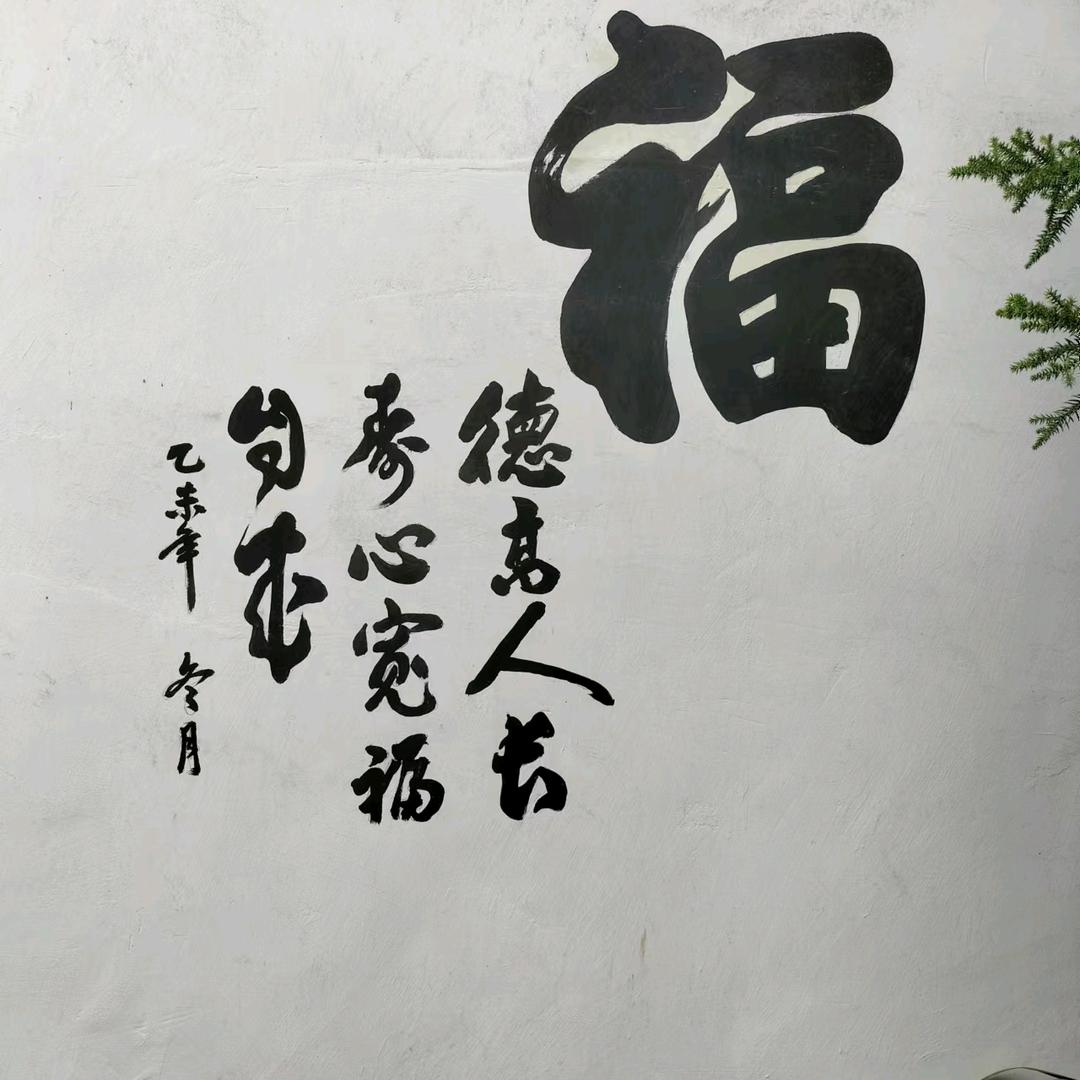 福
德高人长
寿心宽福
自来
乙未年 冬月